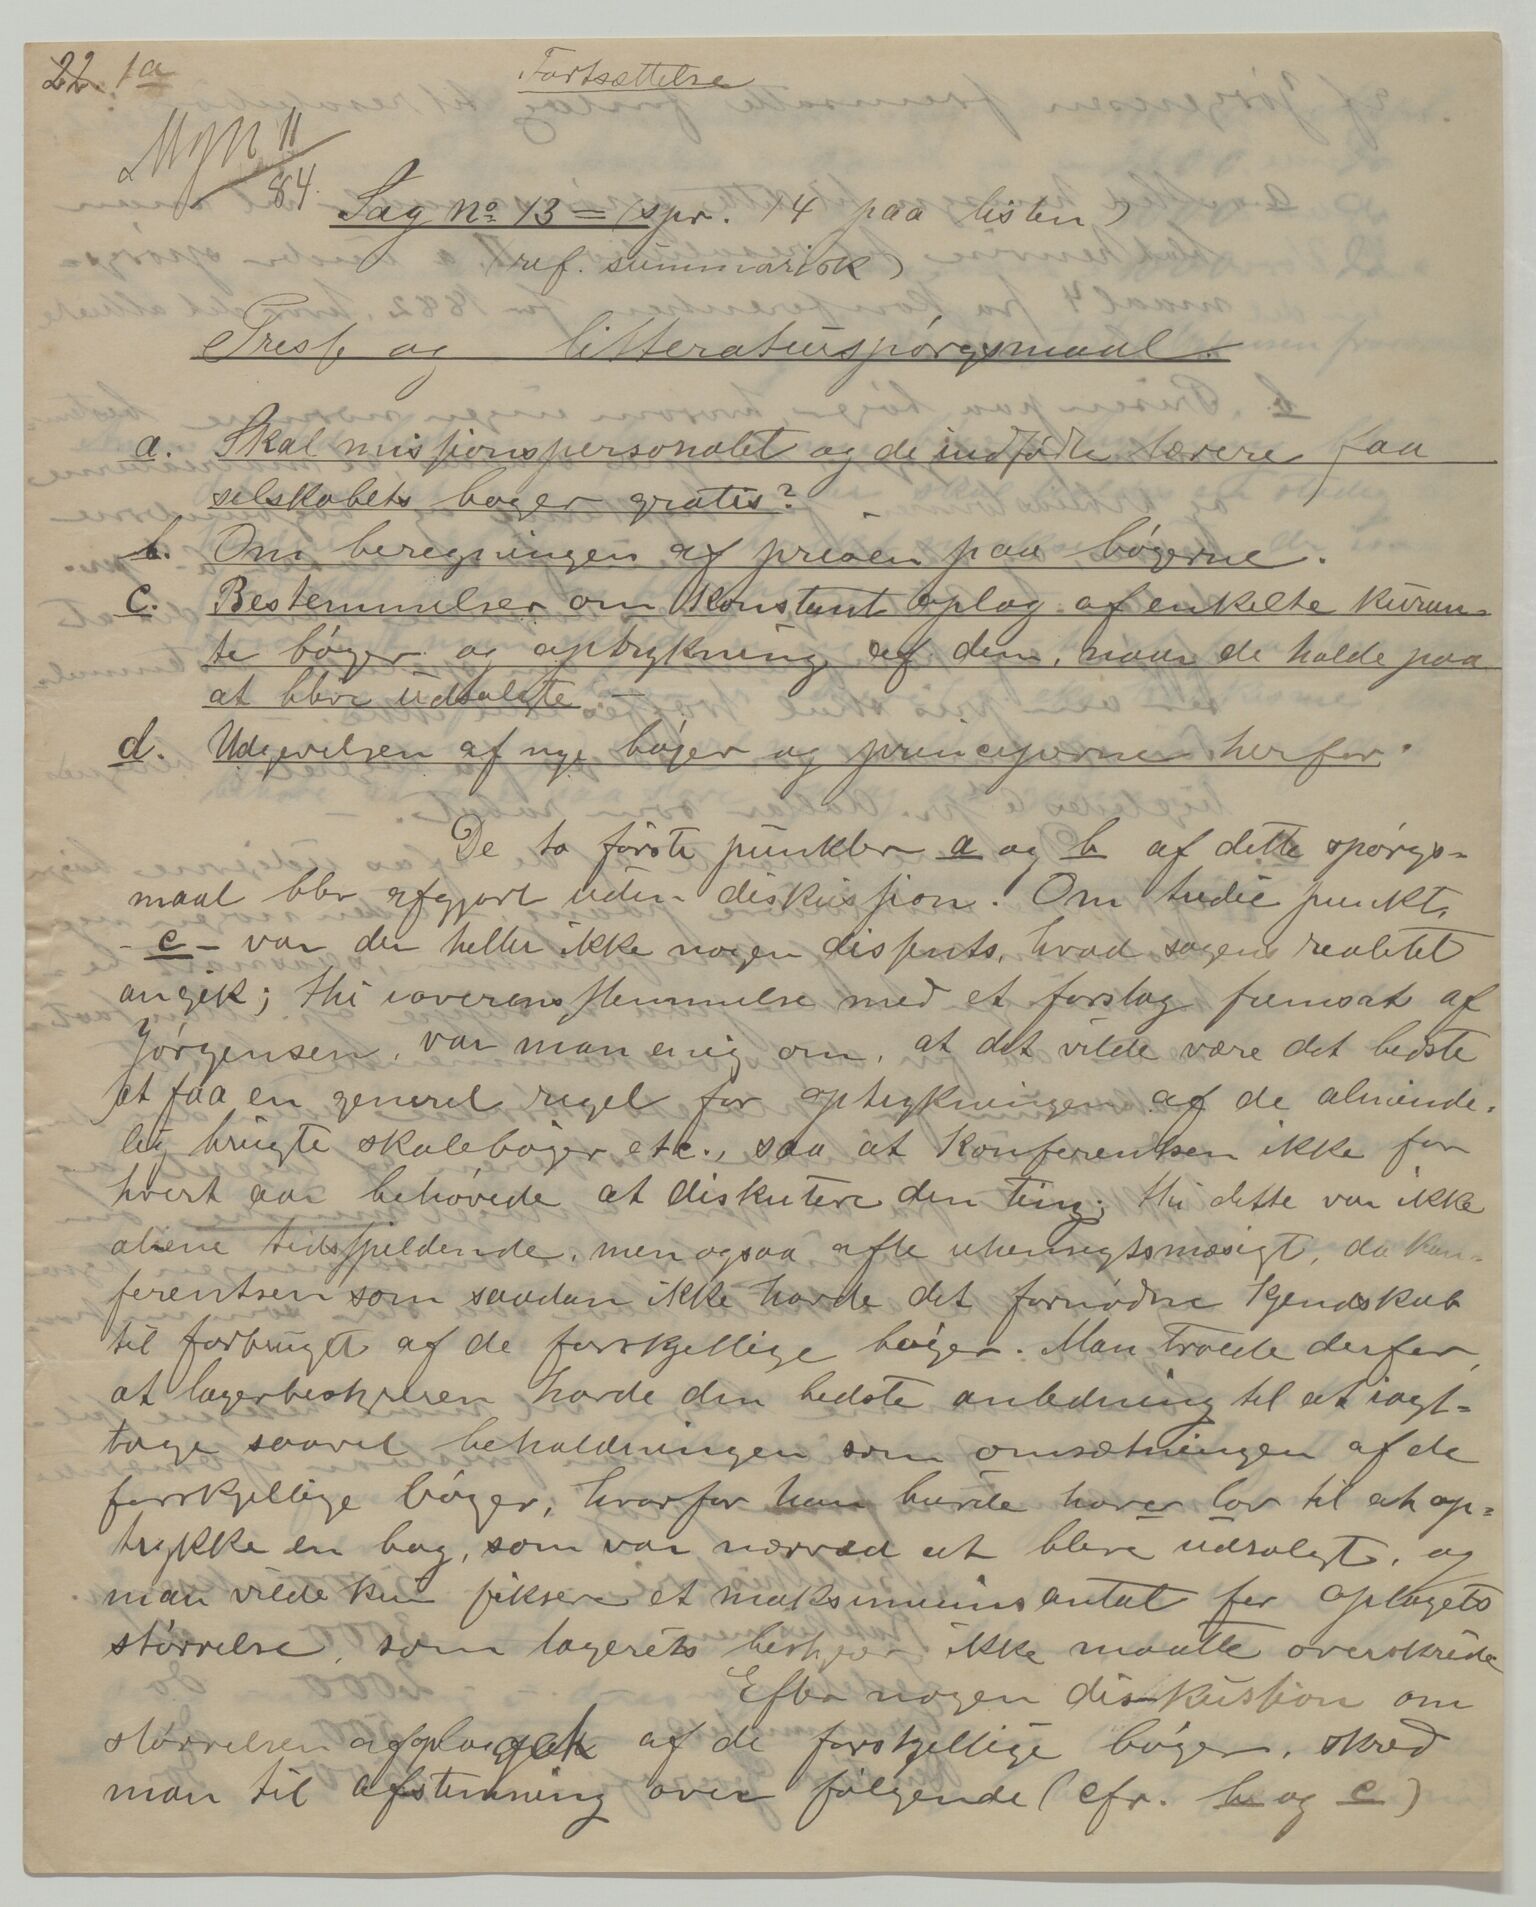 22. 1a
Fortsættelse
11
84.
Sag No 13 = (spr. 14 paa listen)
(ref. summarisk)
Presse og litteraturspørgsmaal.
a. Skal missionspersonalet og de indfødte lærere faa
selskabets bøger gratis?
b. Om beregningen af prisen paa bøgerne.
c. Bestemmelser om konstant oplag af enkelte kuran-
te bøger og optrykning af dem, naar de holde paa
at blive udsolgte —
d. Udgivelsen af nye bøger og principerne herfor.
De to første punkter a og b af dette spørgs-
maal blev afgjort uden diskussion. Om tredie punkt,
- c - var der heller ikke nogen disputs, hvad sagens realitet
angik; thi i overensstemmelse med et forslag fremsat af
Jørgensen, var man enig om, at det vilde være det bedste
at faa en generel regel for optrykningen af de alminde-
lig brugte skolebøger etc., saa at Konferentsen ikke for
hvert aar behøvede at diskutere den ting; thi dette var ikke
alene tidsspildende, men ogsaa ofte uhensigtsmæsigt, da kon-
ferentsen som saadan ikke havde det fornødne kjendskab
til forbruget af de forskjellige bøger. Man troede derfor,
at lagerbestyreren havde den bedste anledning til at iagt-
tage saavel beholdningen som omsætningen af de
forskjellige bøger, hvorfor han burde have lov til at op-
trykke en bog, som var nærved at blive udsolgt, og
man vilde kun fiksere et maksimumsantal for oplagets
størrelse, som lagerets bestyrer ikke maatte overskride
Efter nogen diskussion om
størrelsen af oplaget af de forskjellige bøger, skred
man til afstemning over følgende (cfr. b og c)